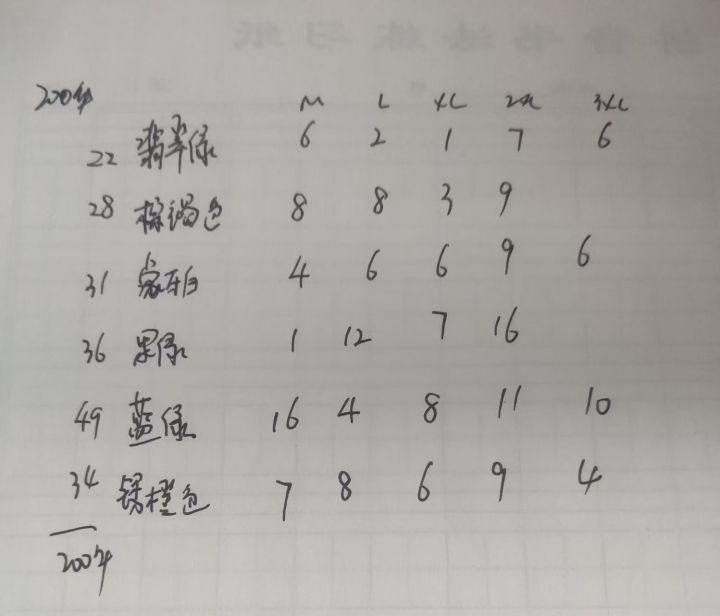 200件 M L XL 2XL 3XL
22 翡翠绿 6 2 1 7 6
28 棕褐色 8 8 3 9
31 象牙白 4 6 6 9 6
36 果绿 1 12 7 16
49 蓝绿 16 4 8 11 10
34 锈橙色 7 8 6 9 4
200件